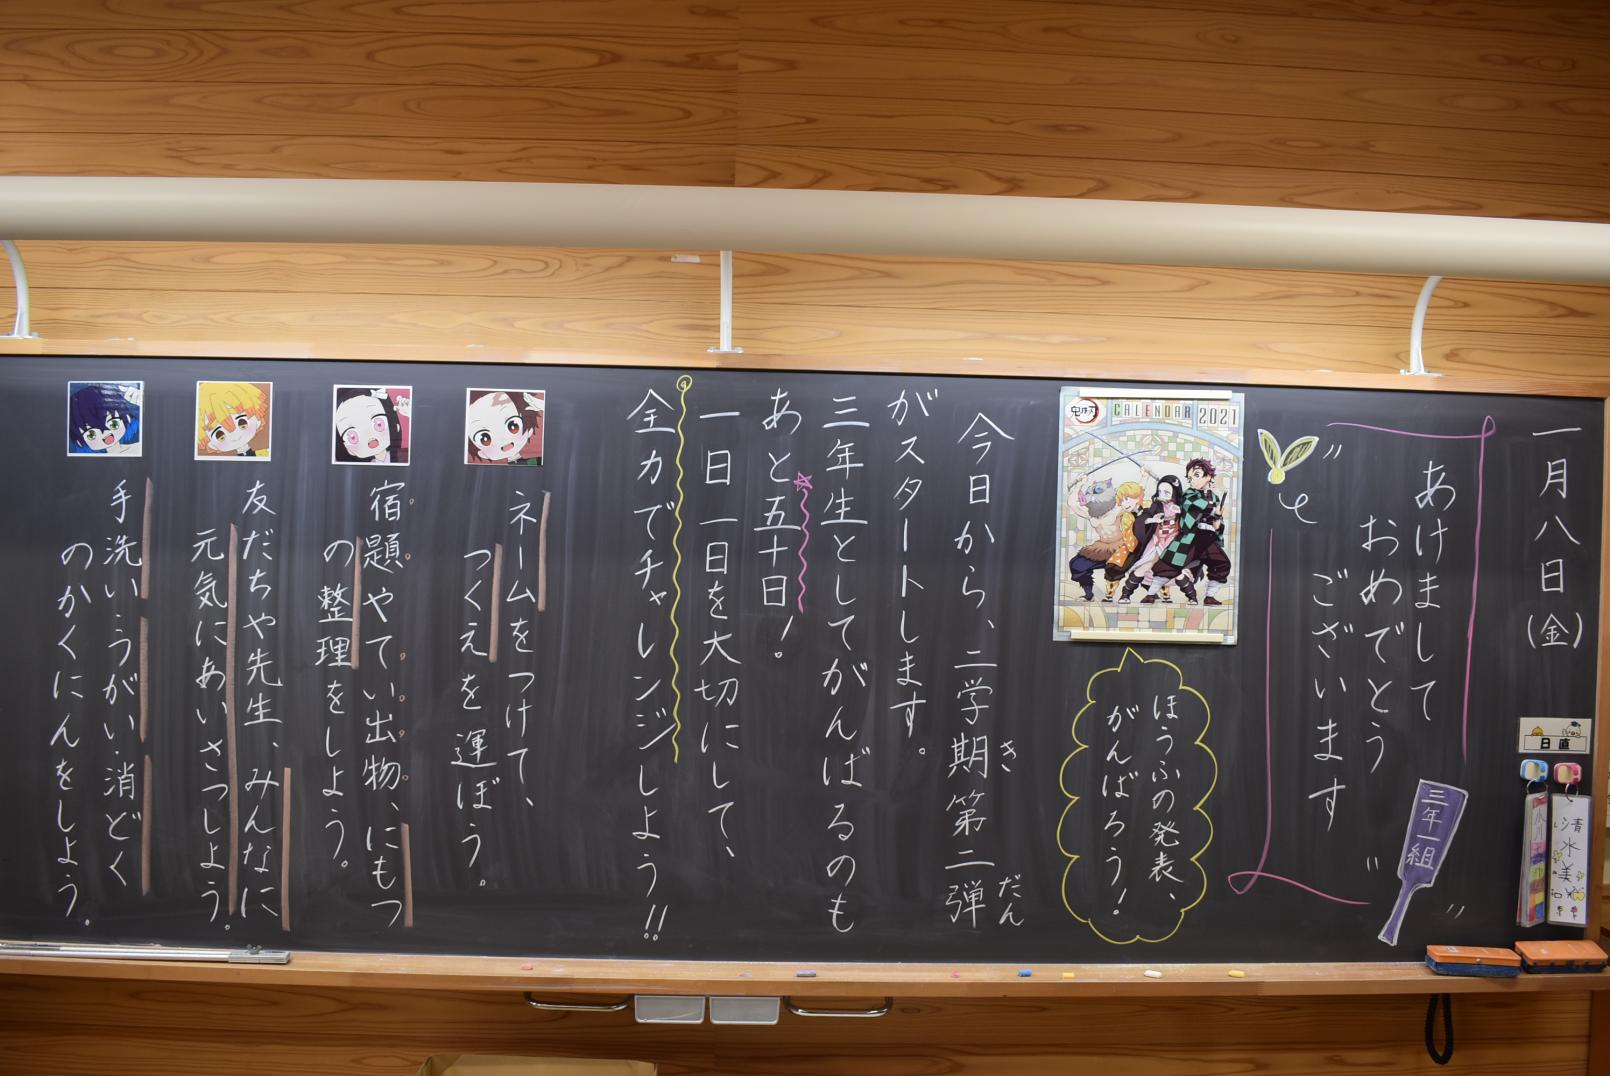 一月八日(金)
日直
清水美
あけまして
おめでとう
ございます
三年一組
CALENDAR 2021
ほうふの発表、
がんばろう!
今日から、二学期第二弾
き
だん
がスタートします。
三年生としてがんばるのも
あと五十日!。
一日一日を大切にして、
全力でチャレンジしよう!!
ネームをつけて、
つくえを運ぼう。
宿題やてい出物、にもつ
の整理をしよう。
友だちや先生、みんなに
元気にあいさつしよう。
手洗い・うがい・消どく
のかくにんをしよう。